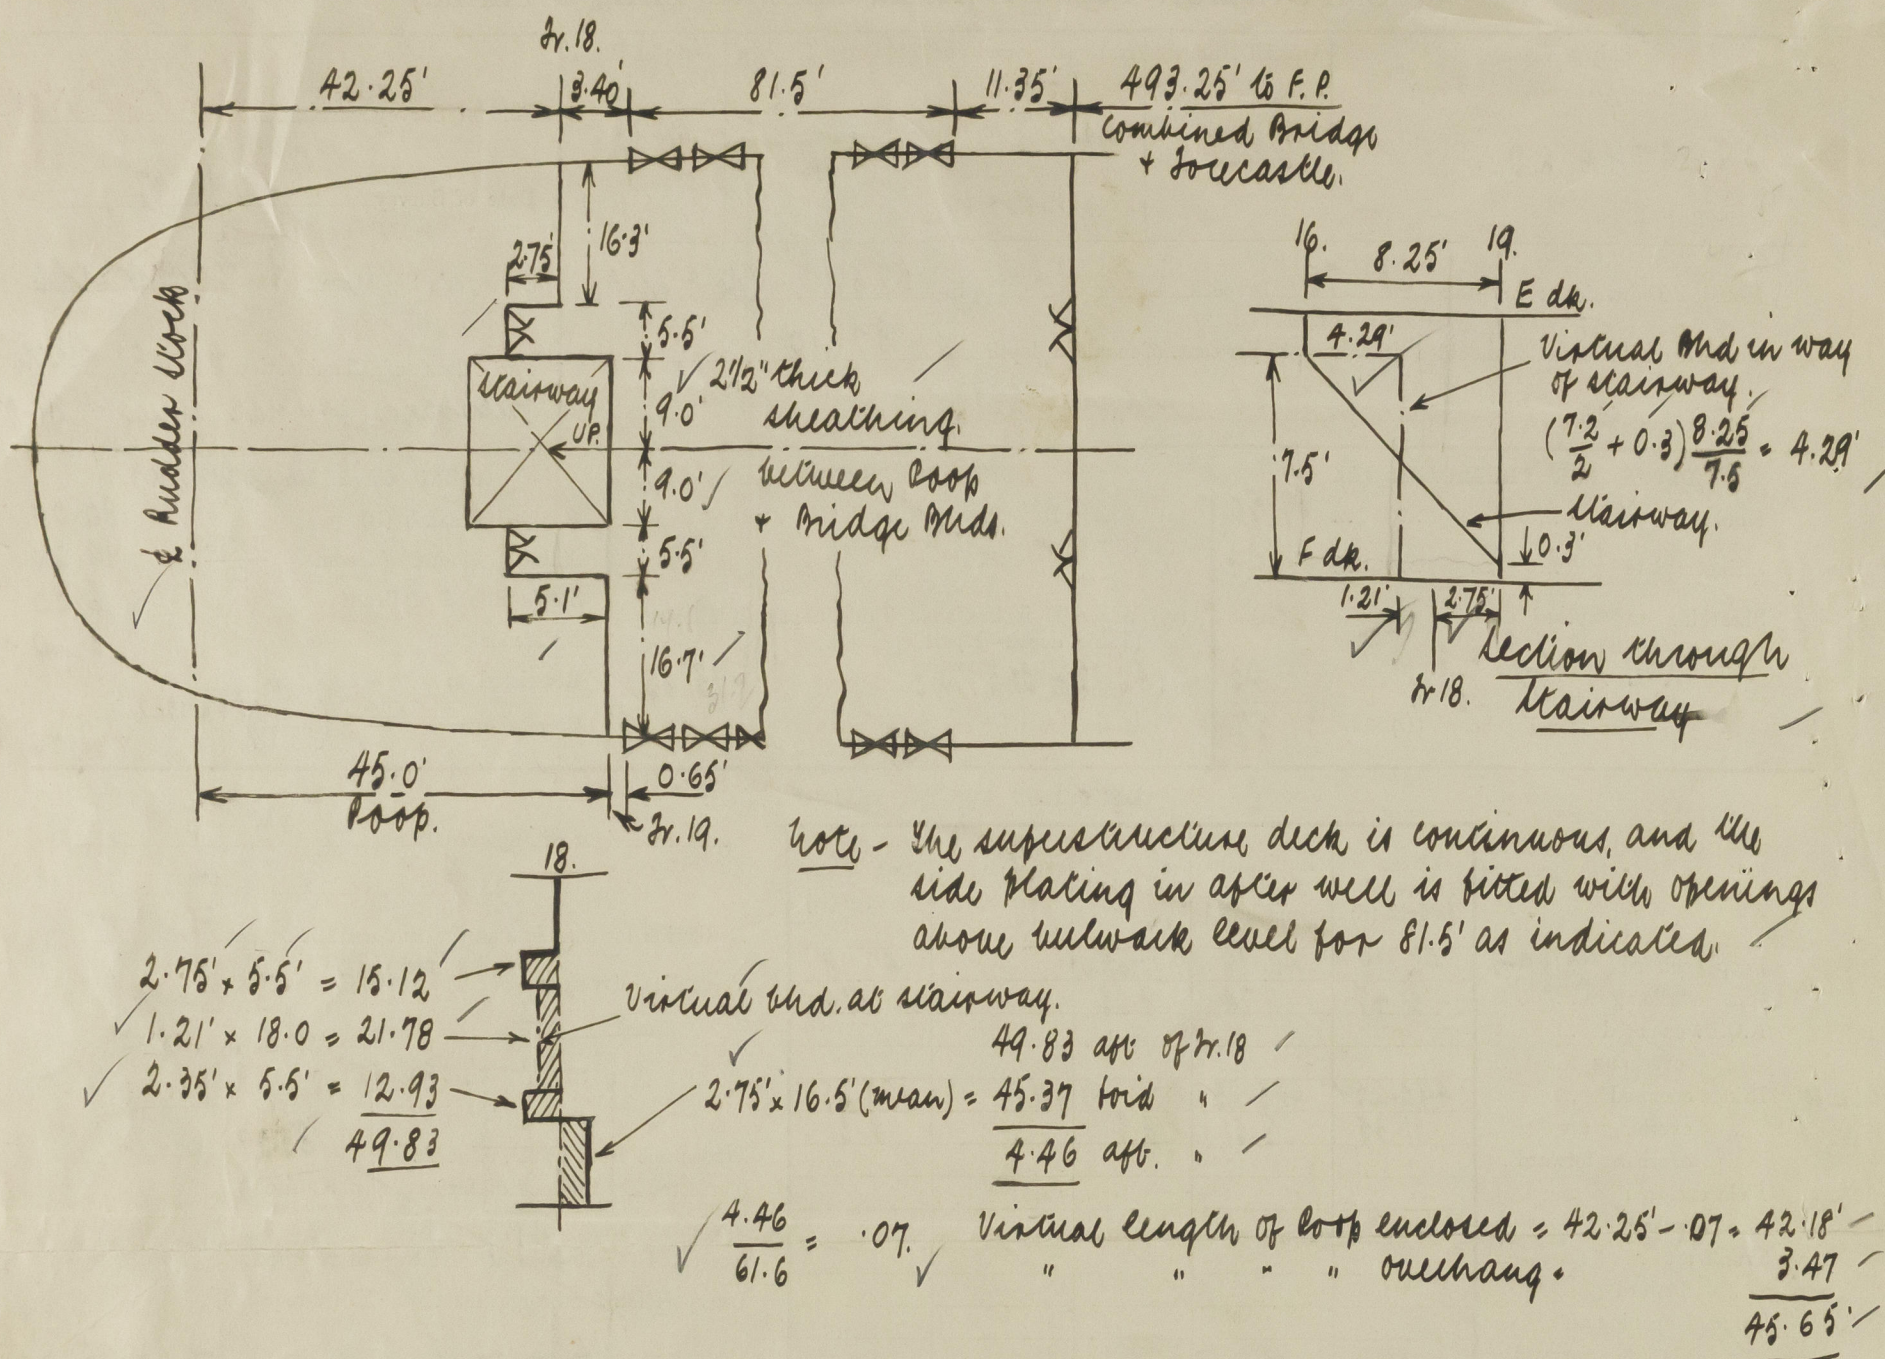 Fr. 18.
42·25'
3·40'
81·5'
11·35'
493·25' to F.P.
Combined Bridge
+ Forecastle.
16·3'
2·75'
5·5'
Stairway
UP.
9·0'
2 1/2" thick
sheathing.
9·0'
between Poop
+ Bridge Bhds.
5·5'
5·1'
16·7'
℄ Rudder Stock
45·0'
Poop.
0·65'
Fr. 19.
16.
8·25'
19.
E dk.
4·29'
Virtual Bhd in way
of stairway.
(7·2/2 + 0·3) 8·25/7·5 = 4·29'
7·5'
Stairway.
F dk.
0·3'
1·21'
2·75'
Fr 18.
Section through
Stairway
Note - The superstructure deck is continuous, and the
side plating in after well is fitted with openings
above bulwark level for 81·5' as indicated.
18.
2·75' x 5·5' = 15·12
1·21' x 18·0 = 21·78
2·35' x 5·5' = 12·93
49·83
Virtual bhd. at stairway.
49·83 aft of Fr. 18
2·75' x 16·5' (mean) = 45·37 ford "
4·46 aft. "
4·46/61·6 = ·07.
Virtual length of Poop enclosed = 42·25' - ·07 = 42·18'
" " " " overhang = 3·47
45·65'